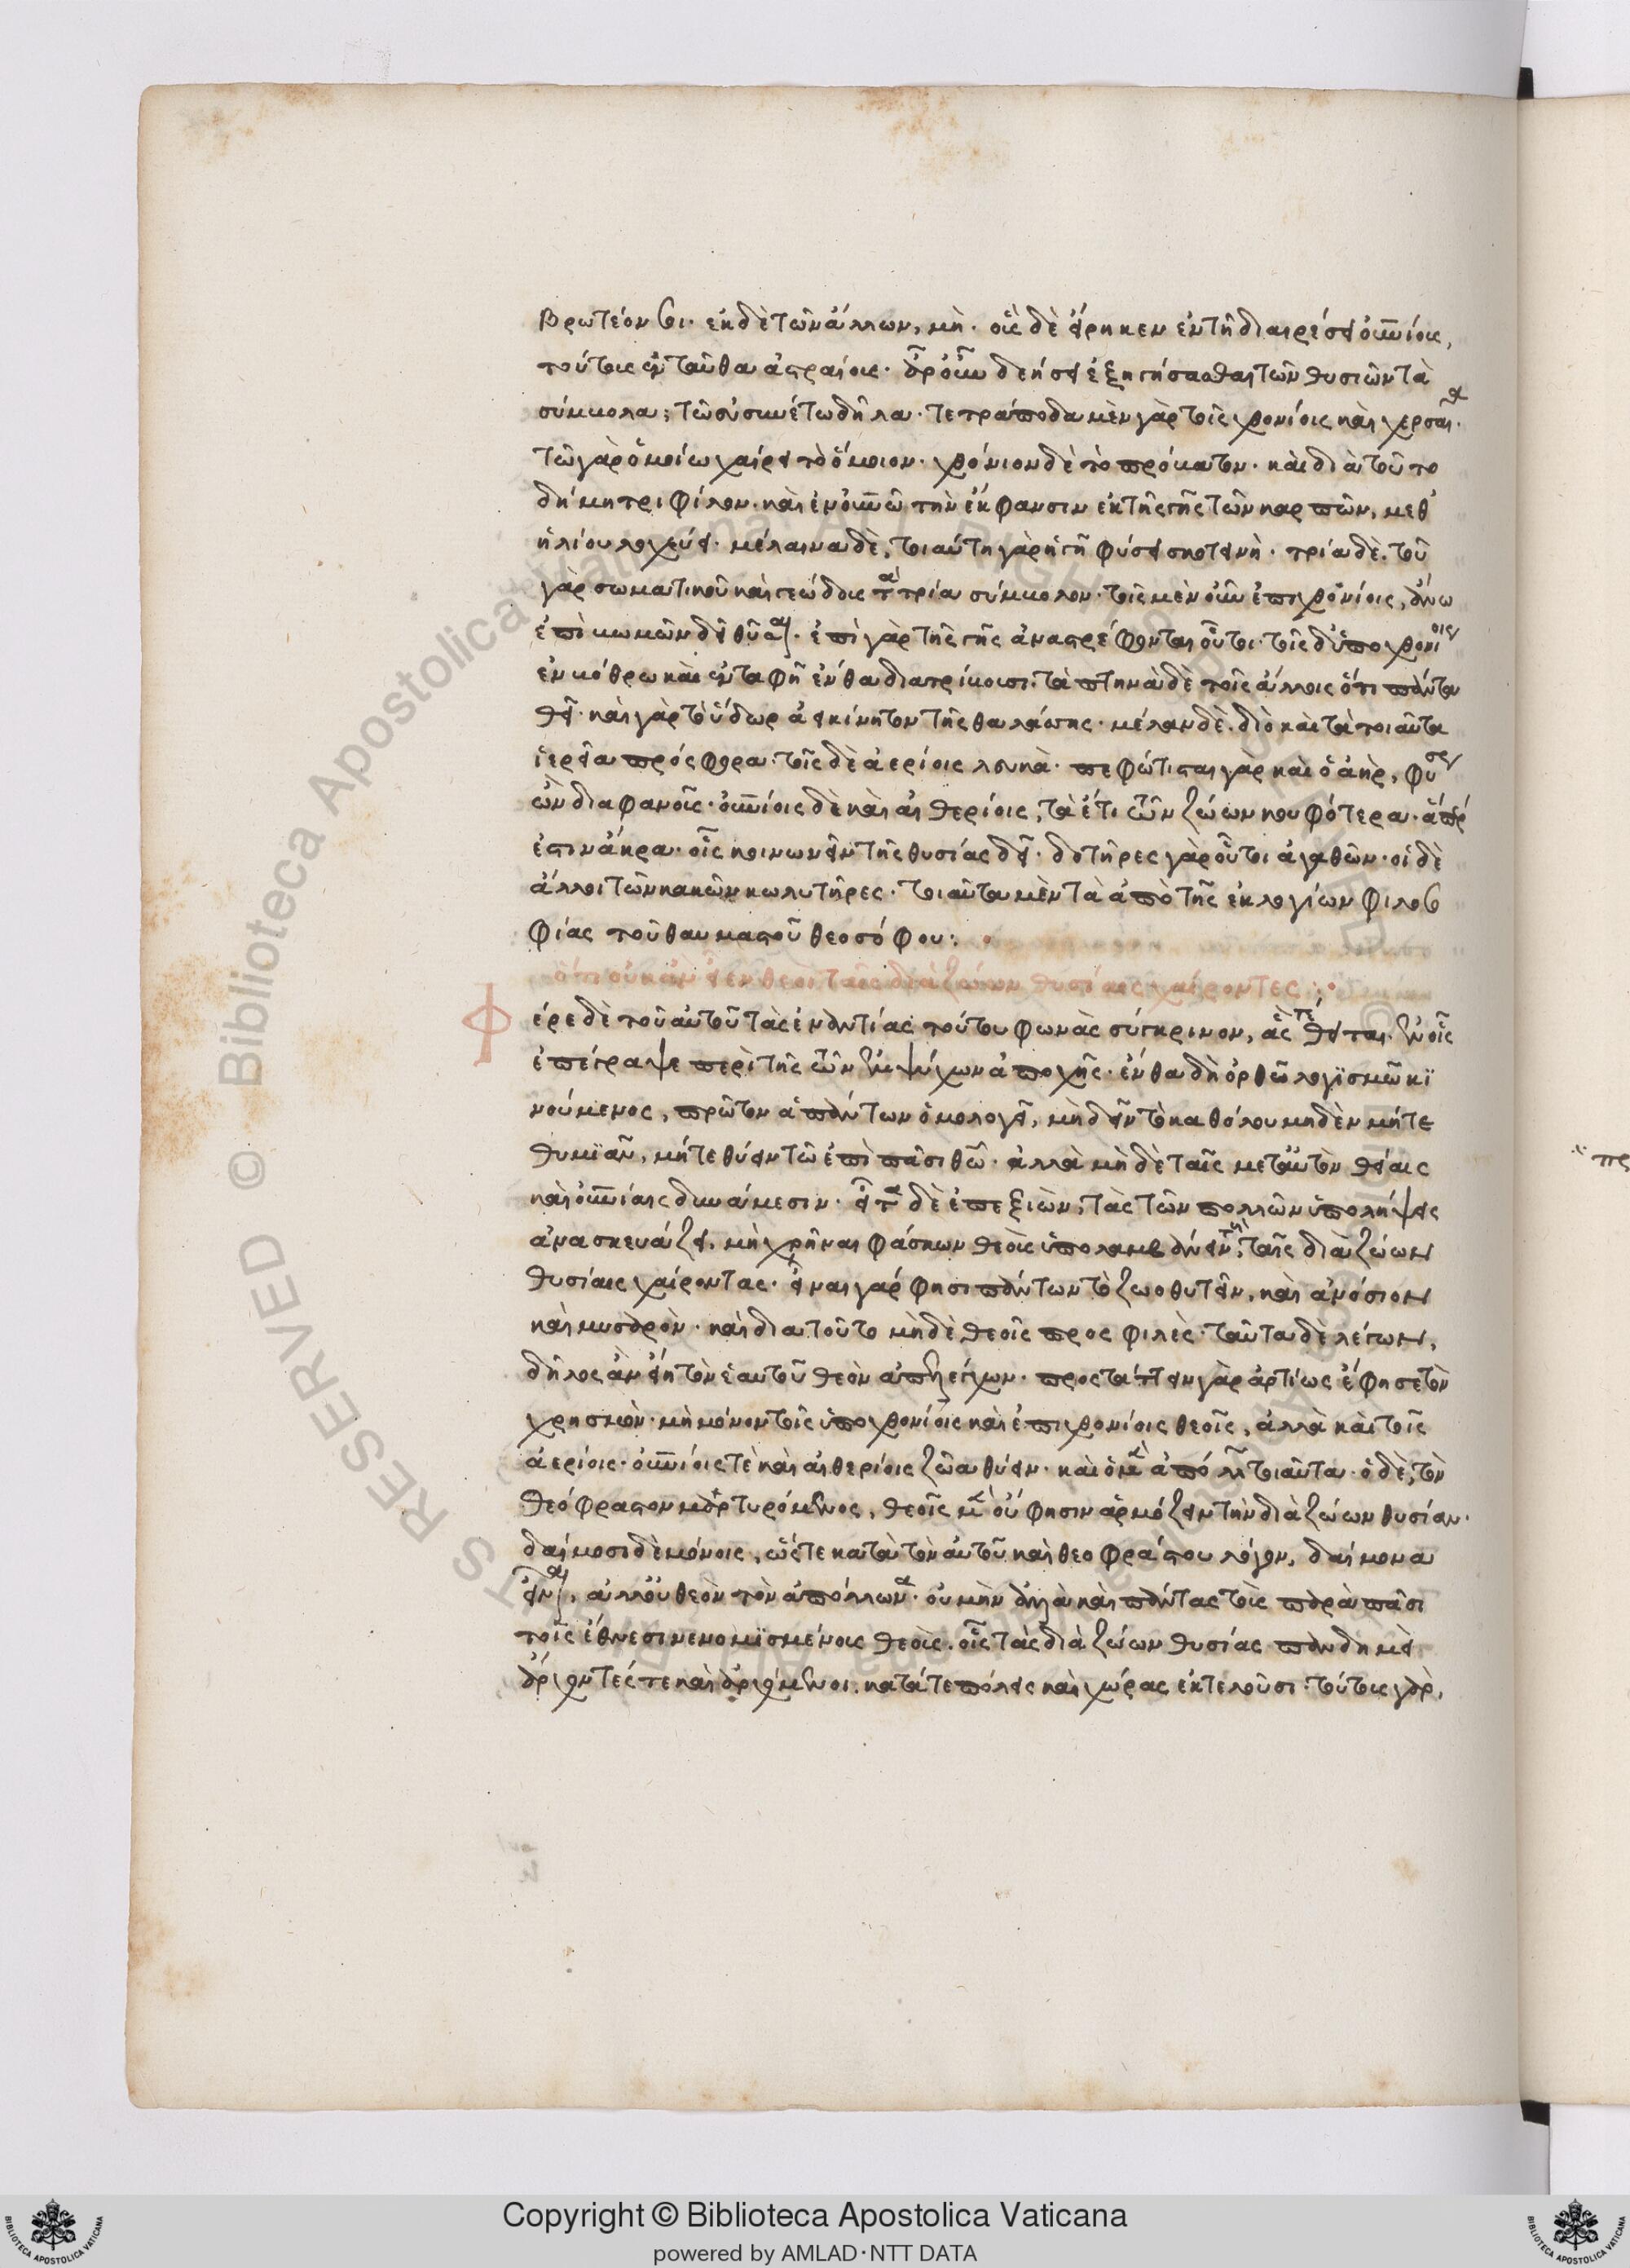 βρωτέον σοι· ἐκ δὲ τῶν ἄλλων, μή. οὓς δὲ εἴρηκεν ἐν τῇ διαιρέσει οὐνίους,
τούτους ἐνταῦθα ἀστραίους. ἆρ' οὖν δεήσει ἐξηγήσασθαι τῶν θυσιῶν τὰ
σύμβολα; τῷ εὐσυνέτῳ δῆλα. τετράποδα μὲν γὰρ τοῖς χθονίοις καὶ χερσαῖα.
τῷ γὰρ ὁμοίῳ χαίρει τὸ ὅμοιον. χθόνιον δὲ τὸ πρόβατον. καὶ διὰ τοῦτο
δήμητρι φίλον. καὶ ἐν οὐνῷ τὴν ἔκφανσιν ἐκ τῆς γῆς τῶν καρπῶν, μεθ'
ἡλίου λοχεύει. μέλαινα δὲ, τοιαύτη γὰρ ἡ γῆ φύσει σκοτεινή. τρία δὲ. τοῦ
γὰρ σωματικοῦ καὶ γεώδους τὰ τρία σύμβολον. τοῖς μὲν οὖν ἐπιχθονίοις, ἄνω
ἐπὶ βωμῶν δεῖ θῦσαι. ἐπὶ γὰρ τῆς γῆς ἀναστρέφονται οὗτοι. τοῖς δ' ὑποχθονίοις
ἐν βόθρῳ καὶ ἐν ταφῇ ἔνθα διατρίβουσι. τὰ πτηνὰ δὲ τοῖς ἄλλοις ὅτι πάντα
θεῖ. καὶ γὰρ τὸ ὕδωρ ἀεικίνητον τῆς θαλάσσης. μέλαν δὲ. διὸ καὶ τὰ τοιαῦτα
ἱερεῖα πρόσφορα. τοῖς δὲ ἀερίοις λευκά. πεφώτισται γὰρ καὶ ὁ ἀὴρ, φύσεως
ὢν διαφανοῦς. οὐνίοις δὲ καὶ αἰθερίοις, τὰ ἔτι τῶν ζώων κουφότερα. ἅπερ
ἐστιν ἄκρα. οἷς κοινωνεῖν τῆς θυσίας δεῖ. δοτῆρες γὰρ οὗτοι ἀγαθῶν. οἱ δὲ
ἄλλοι τῶν κακῶν κωλυτῆρες. τοιαῦτα μὲν τὰ ἀπὸ τῆς ἐκ λογίων φιλοσο
φίας τοῦ θαυμαστοῦ θεοσόφου:·
ὅτι οὐκ ἂν εἶεν θεοὶ ταῖς διὰ ζώων θυσίαις χαίροντες:·
Φέρε δὲ τοῦ αὐτοῦ τὰς ἐναντίας τούτου φωνὰς σύγκρινον, ἃς τέθειται. ἐν οἷς
ἐπέγραψε περὶ τῆς τῶν ἐμψύχων ἀποχῆς. ἔνθα δὴ ὀρθῷ λογϊσμῷ κϊ
νούμενος, πρῶτον ἁπάντων ὁμολογεῖ, μὴ δεῖν τὸ καθόλου μηδὲν μήτε
θυμϊᾶν, μήτε θύειν τῷ ἐπὶ πᾶσι θῶ. ἀλλὰ μὴ δὲ ταῖς μετ' αὐτὸν θείαις
καὶ οὐνίαις δυνάμεσιν. εἶτα δὲ ἐπεξιὼν, τὰς τῶν πολλῶν ὑπολήψεις
ἀνασκευάζει, μὴ χρῆναι φάσκων θεοὺς ὑπολαμβάνειν τοὺς, ταῖς διὰ ζώων
θυσίαις χαίροντας. εἶναι γάρ φησι πάντων τὸ ζωοθυτεῖν, καὶ ἀνόσιον
καὶ μυσαρὸν. καὶ διατοῦτο μὴ δὲ θεοῖς προσφιλὲς. ταῦτα δὲ λέγων,
δῆλος ἂν εἴη τὸν ἑαυτοῦ θεὸν ἀπελέγχων. προστάττειν γὰρ ἀρτίως ἔφησε τὸν
χρησμὸν. μὴ μόνον τοῖς ὑποχθονίοις καὶ ἐπιχθονίοις θεοῖς, ἀλλὰ καὶ τοῖς
ἀερίοις. οὐνίοις τὲ καὶ αἰθερίοις ζῶα θύειν. καὶ ὁ μὲν ἀπόλλων τοιαῦτα. ὁ δὲ, τὸν
θεόφραστον μαρτυρόμενος, θεοῖς μὲν οὔ φησιν ἁρμόζειν τὴν διὰ ζώων θυσίαν.
δαίμοσι δὲ μόνοις. ὥστε κατὰ τὸν αὐτοῦ καὶ θεοφράστου λόγον, δαίμονα
εἶναι, ἀλλ' οὐ θεὸν τὸν ἀπόλλωνα. οὐ μὴν ἀλλὰ καὶ πάντας τοὺς παρὰ πᾶσι
τοῖς ἔθνεσι νενομϊσμένους θεοὺς. οἷς τὰς διὰ ζώων θυσίας πανδημεὶ
ἄρχοντές τε καὶ ἀρχόμενοι. κατά τε πόλεις καὶ χώρας ἐκτελοῦσι. τούτους γὰρ,
Copyright © Biblioteca Apostolica Vaticana
powered by AMLAD·NTT DATA